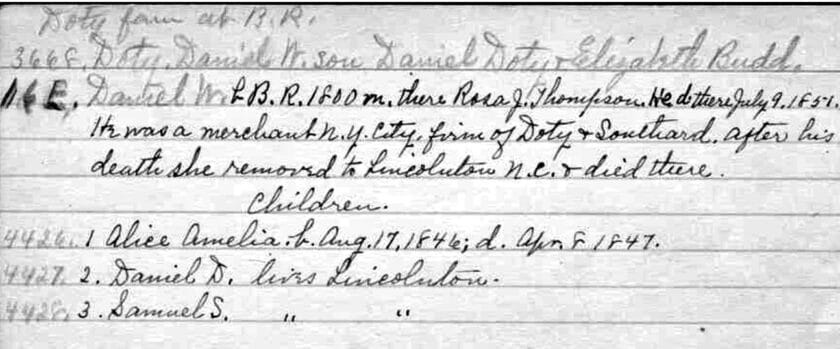 Doty fam at B.R.
3668, Doty, Daniel W. son Daniel Doty & Elizabeth Budd.
16E, Daniel W. b B.R. 1800 m. there Rosa J. Thompson. He d. there July 9. 1857.
He was a merchant N.Y. City, firm of Doty & Southard. after his
death she removed to Lincolnton N.C. & died there.
Children.
4426, 1 Alice Amelia. b. Aug. 17, 1846; d. Apr. 8 1847.
4427, 2. Daniel D. lives Lincolnton.
4428, 3 Samuel S. " "